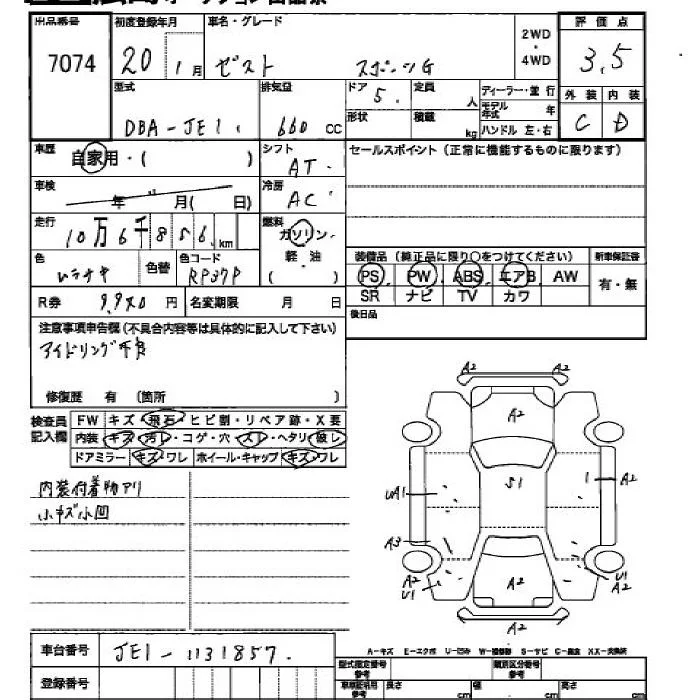 出品番号 初度登録年月 車名・グレード 2WD・4WD 評価点
7074 20 1月 ゼスト スポーツG 3.5
型式 排気量 ドア 定員 人 ディーラー・並行 外装 内装
DBA-JE1 660 CC 5. 形状 積載 kg モデル年式 年 C D
ハンドル 左・右
車歴 自家用・( ) シフト AT. セールスポイント(正常に機能するものに限ります)
車検 年 月( 日) 冷房 AC
走行 10万6千856km 燃料 ガソリン・軽油 ( )
装備品(純正品に限り○をつけてください) 新車保証書
色 ムラサキ 色替 色コード RP37P
PS PW ABS エアB AW 有・無
SR ナビ TV カワ
R券 9,980円 名変期限 月 日 後日品
注意事項申告欄(不具合内容等は具体的に記入して下さい)
アイドリング不良
修復歴 有 (箇所 )
検査員記入欄 FW キズ・飛石・ヒビ割・リペア跡・X要
内装 キズ・汚レ・コゲ・穴・スレ・ヘタリ・破レ
ドアミラー キズ・ワレ ホイール・キャップ キズ・ワレ
内装付着物アリ
小キズ小凹
A2
A2
S1
UA1 1 A2
A3
A2 U1 A2 U1 A2
A2
A-キズ E-エクボ U-凹ミ W-補修跡 S-サビ C-腐食 XX-交換済
車台番号 JE1-1131857.
型式指定番号 参考 類別区分番号 参考
登録番号 車庫証明用 参考 長さ cm 幅 cm 高さ cm